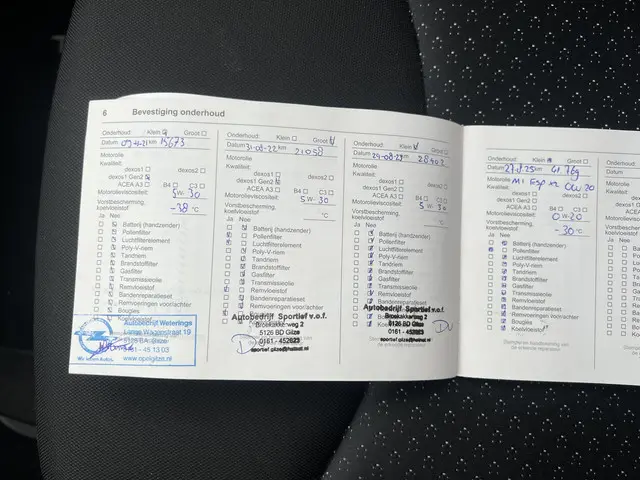 6 Bevestiging onderhoud
Onderhoud: Klein Groot
Datum 09-11-21 km 15673
Motorolie
Kwaliteit:
dexos1 dexos2
dexos1 Gen2
ACEA A3 B4 C3
Motorolieviscositeit:
5 W- 30
Vorstbescherming,
koelvloeistof
-38 °C
Ja Nee
Batterij (handzender)
Pollenfilter
Luchtfilterelement
Poly-V-riem
Tandriem
Brandstoffilter
Gasfilter
Transmissieolie
Remvloeistof
Bandenreparatieset
Remvoeringen voor/achter
Bougies
Koelvloeistof
Autobedrijf Weterings
Lange Wagenstraat 19
5126 BA Gilze
0161 - 45 13 03
www.opelgilze.nl
Onderhoud: Klein Groot
Datum 31-08-22 km 21058
Motorolie
Kwaliteit:
dexos1 dexos2
dexos1 Gen2
ACEA A3 B4 C3
Motorolieviscositeit:
5 W- 30
Vorstbescherming,
koelvloeistof
°C
Ja Nee
Batterij (handzender)
Pollenfilter
Luchtfilterelement
Poly-V-riem
Tandriem
Brandstoffilter
Gasfilter
Transmissieolie
Remvloeistof
Bandenreparatieset
Remvoeringen voor/achter
Autobedrijf Sportief v.o.f.
Broekakkerweg 2
5126 BD Gilze
0161 - 452823
sportief.gilze@hetnet.nl
Onderhoud: Klein Groot
Datum km 28402
Motorolie
Kwaliteit:
dexos1 dexos2
dexos1 Gen2
ACEA A3 B4 C3
Motorolieviscositeit:
5 W- 30
Vorstbescherming,
koelvloeistof
°C
Ja Nee
Batterij (handzender)
Pollenfilter
Luchtfilterelement
Poly-V-riem
Tandriem
Brandstoffilter
Gasfilter
Transmissieolie
Remvloeistof
Bandenreparatieset
Remvoeringen voor/achter
Autobedrijf Sportief v.o.f.
5126 BD Gilze
0161 - 452823
sportief.gilze@hetnet.nl
Onderhoud: Klein Groot
Datum km
Motorolie
Kwaliteit:
M1 ESP x2 0W20
dexos1 dexos2
dexos1 Gen2
ACEA A3 B4 C3
Motorolieviscositeit:
0 W- 20
Vorstbescherming,
koelvloeistof
-30 °C
Ja Nee
Batterij (handzender)
Pollenfilter
Luchtfilterelement
Poly-V-riem
Tandriem
Brandstoffilter
Gasfilter
Transmissieolie
Remvloeistof
Bandenreparatieset
Remvoeringen voor/achter
Bougies
Koelvloeistof